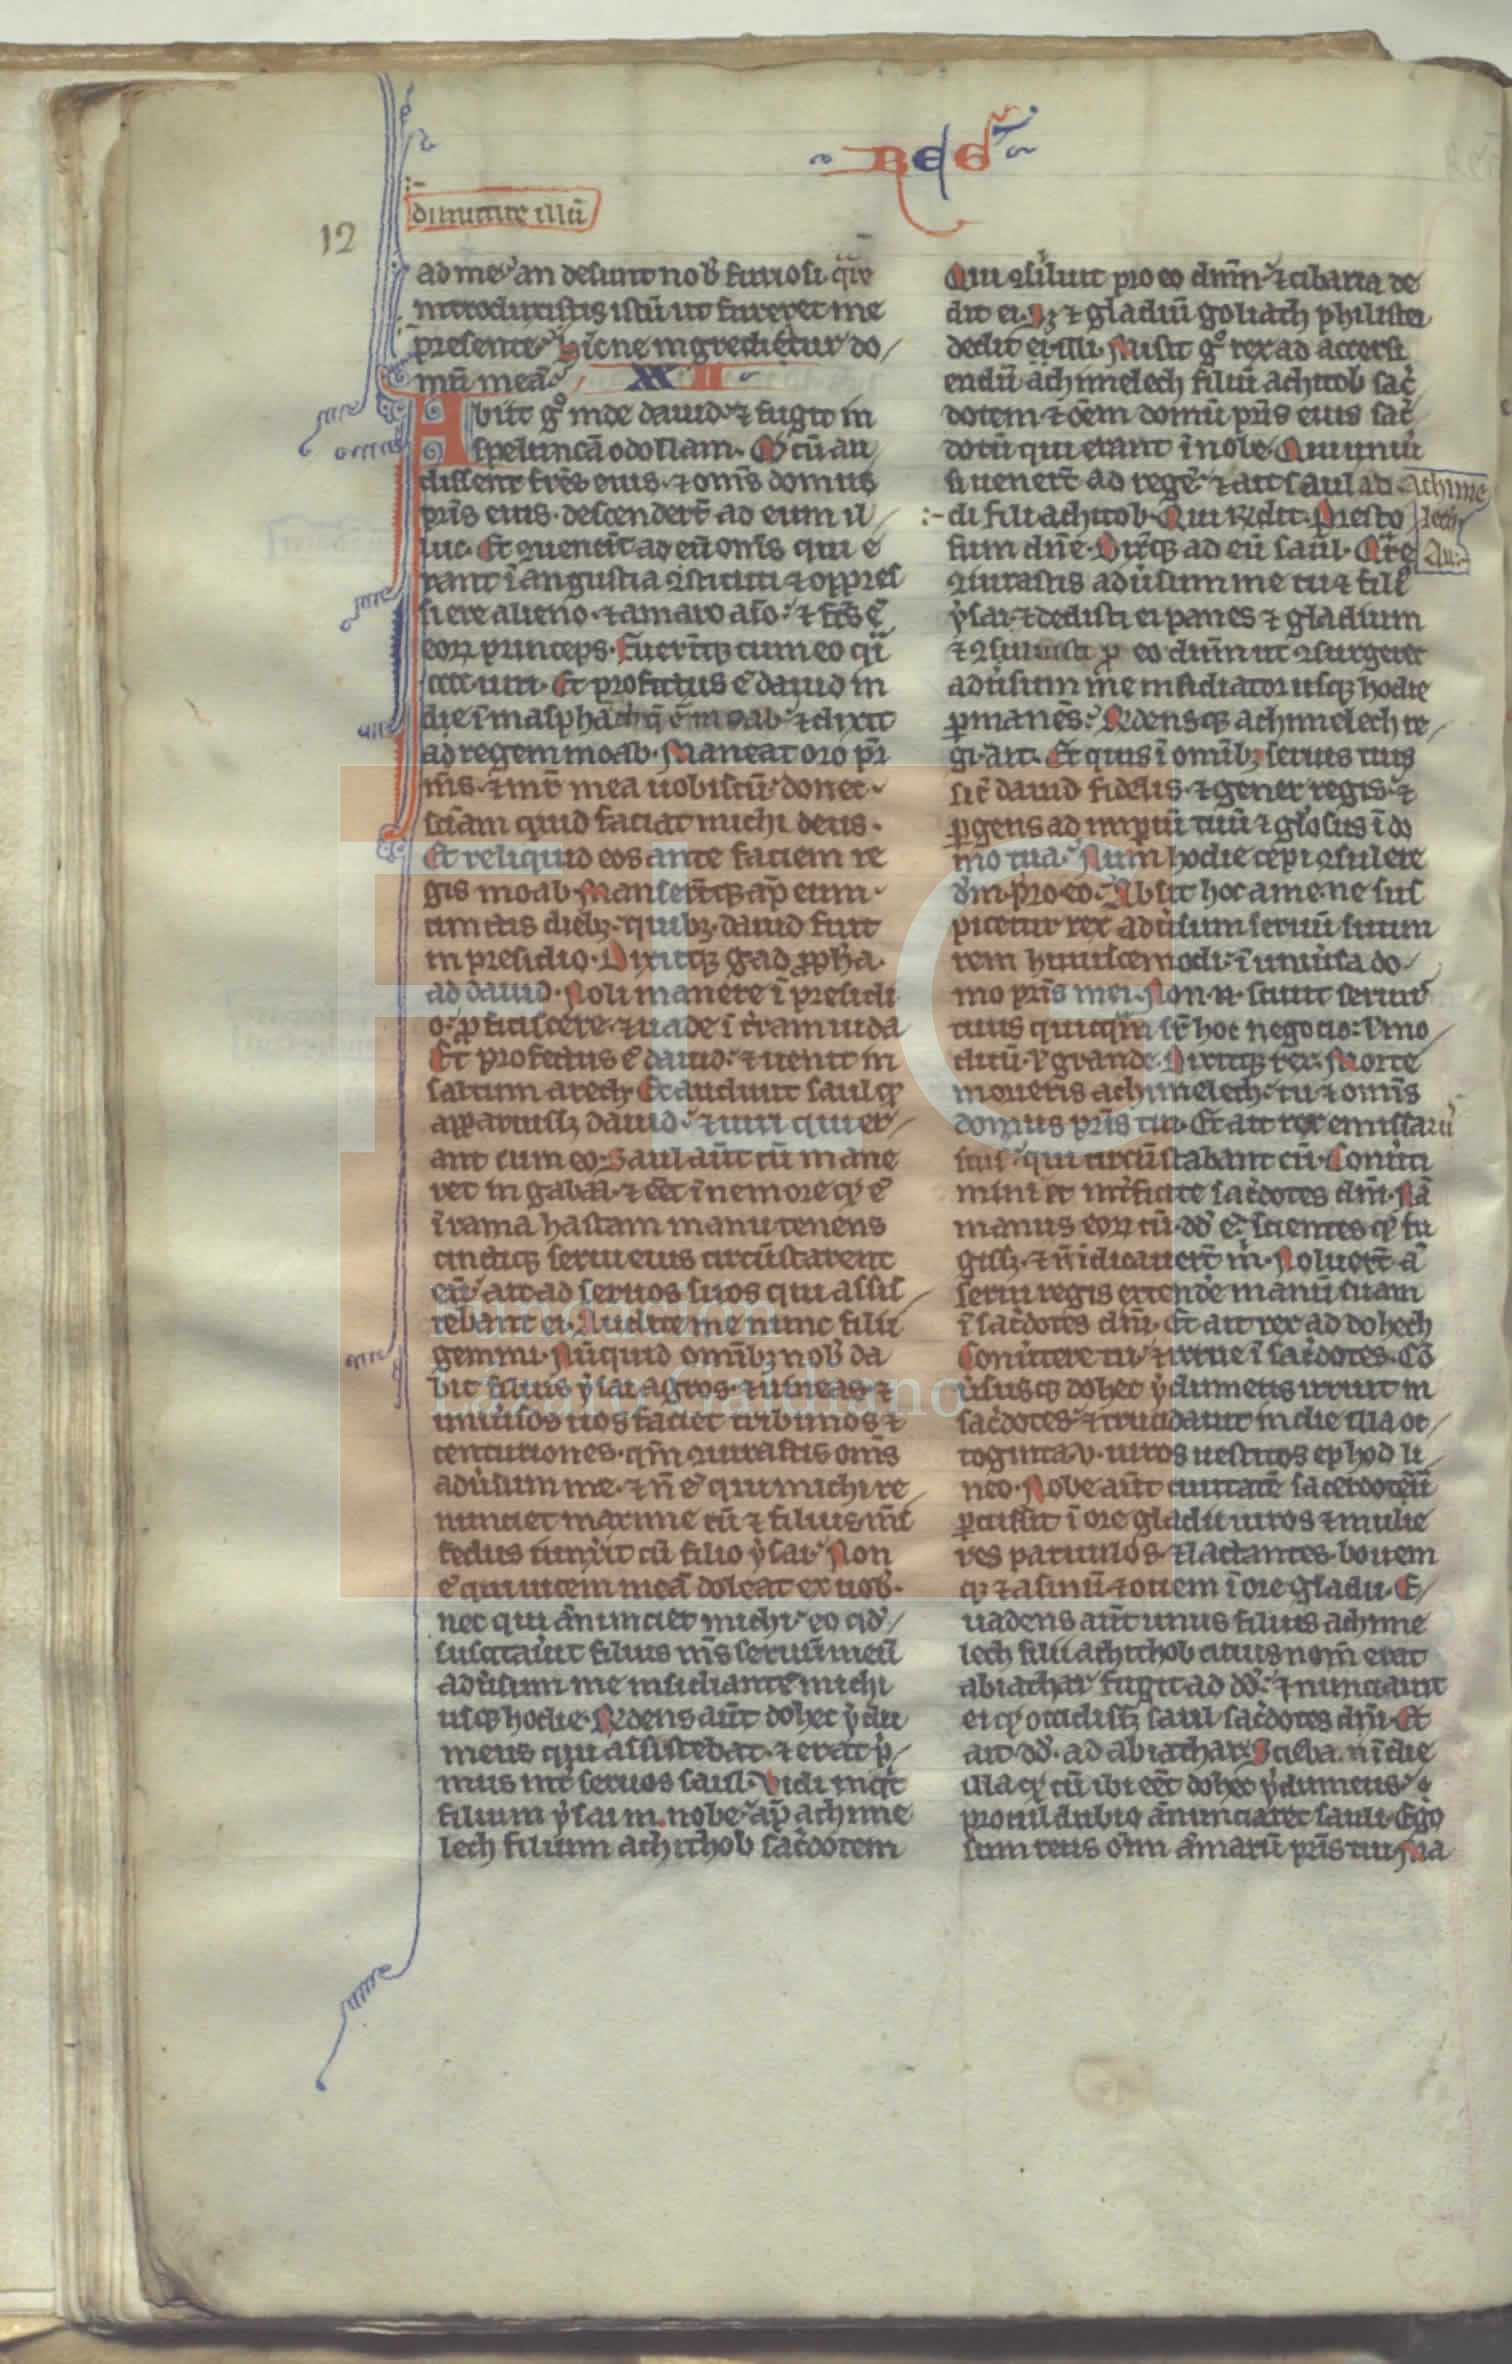 REG
dimitite illū
12
ad me· an desunt nob̄ furiosi· qͣre
introduxistis istū ut fureret me
presente· Hicne ingrediet̄ur do/
mū meā· XXII
Abiit gͦ inde dauid· ⁊ fugit in
speluncā odollam· Qͦ cū au/
dissent frēs eius· ⁊ om̄s domus
pr̄is eius· descender̄t ad eum il/
luc· Et ꝯuenēt ad eū om̄s qui e
rant ī angustia ꝯstituti ⁊ op̄pres
si ere alieno· ⁊ amaro aīo· ⁊ fc̄s ē
eoꝝ princeps· Fuer̄tqꝫ cum eo qͣi
cccc· uiri· Et profectus ē dauid in
de ī maspha q̄ ē moab· ⁊ dixit
ad regem moab· Maneat oro pr̄
m̄s· ⁊ mr̄ mea uobiscū· donec·
sciam quid faciat michi deus·
Et reliquid eos ante faciem re
gis moab· Manser̄tqꝫ ap̄ eum·
cunctis diebꝫ· quibꝫ dauid fuit
in presidio· Dixitqꝫ gad ꝓph̄a·
ad dauid· Noli manere ī presidi
o· ꝓficiscere· ⁊ uade ī t̄ram iuda
Et profectus ē dauid· ⁊ uenit in
saltum areth· Et audiuit saul qͦ
apparuissꝫ dauid· ⁊ uiri qui er/
ant cum eo· Saul aūt cū mane
ret in gabaa· ⁊ eēt ī nemore qͦ ē
ī rama hastam manu tenens
cunctiqꝫ serui eius circūstarent
eū· ait ad seruos suos qui assis/
tebant ei· Audite me nunc filii
gemini· Nūquid omībꝫ nob̄ da
bit filius ẏsai agros· ⁊ uineas ⁊
uniu̾sos uos faciet tribunos ⁊
centuriones· qm̄ ꝯiurastis om̄s
adu̾sum me· ⁊ n̄ ē qui michi re
nunciet maxime cū ⁊ filius m̄s
fedus iunx̾it cū filio ẏsai· Non
ē qui uicem meā doleat ex uob̄·
nec qui ānunciet michi· eo qd̾/
suscitau̾it filius m̄s seruū meū
adu̾sum me insidiantē michi
usqꝫ hodie· Rn̄dens aūt dohec ẏdu
meus qui assistebat· ⁊ erat p̾/
mus int̾ seruos saul· Vidi inqͥt
filium ẏsai in nobe· ap̄ achime
lech filium achithob sac̾dotem
Qui ꝯsuluit pro eo dm̄n· ⁊ cibaria de
dit ei· Sꝫ ⁊ gladiū goliath philistei
dedit ei illi· Misit gͦ rex ad accersi
endū achimelech filiū achitob sac̾
dotem ⁊ ōem domū pr̄is eius sac̾
dotū qui erant ī nobe· Qui uniu̾
si uener̄t ad regē· ⁊ ait saul ad· Achime
:- di fili achitob· Qui rn̄dit· Presto lech
sum dn̄e· Dix̾qꝫ ad eū saul· Qͣre Au:-
ꝯiurastis adu̾sum me tu ⁊ fili̾
ẏsai· ⁊ dedisti ei panes ⁊ gladium
⁊ ꝯsuluisti ꝓ eo dm̄n ut ꝯsurgeret
adu̾sum me insidiator usqꝫ hodie
ꝑmanēs· Rn̄densqꝫ achimelech re/
gi· ait· Et quis ī omībꝫ seruis tuis
sic̄ dauid fidelis· ⁊ gener regis· ⁊
ꝑgens ad imꝑiū tuū ⁊ gl̄osus ī do
mo tua· Num hodie cepi ꝯsulere
dm̄· pro eo· Absit hoc a me· ne sus
picetur rex adu̾sum seruū suum
rem huiuscemodi· ī uniu̾sa do/
mo pr̄is mei· Non .n. sciuit seruus
tuus quicqͣm sr̄ hoc negocio· l̾ mo/
dicū· l̾ grande· Dixitqꝫ rex· Morte
morieris achimelech· tu ⁊ om̄is
domus pr̄is tui· Et ait rex emissariis
suis· qui circūstabant eū· Conu̾ti
mini et int̾ficite sac̾dotes dn̄i· Nā
manus eoꝝ cū dd̾ ē· scientes qͦ fu
gissꝫ· ⁊ n̄ īdicauer̄t m̄· Noluer̄t aū
serui regis extende̾ manū suam
ī sac̾dotes dn̄i· Et ait rex ad dohech
Conu̾tere tu· ⁊ irrue ī sac̾dotes· Cō
u̾susqꝫ dohec ẏdumeus irruit in
sac̾dotes· ⁊ trucidauit in die illa oc/
toginta· v· uiros uestitos ephod li/
neo· Nobe aūt ciuitatē sacerdotū
ꝑcussit ī ore gladii uiros ⁊ mulie
res paruulos· ⁊ lactantes· bouem
qꝫ ⁊ asinū ⁊ ouem ī ore gladii· E/
uadens aūt unus filius achime
lech filii achithob cuius nom̄ erat
abiathar fugit ad dd̾· ⁊ nunciauit
ei qͦ occidissꝫ saul sac̾dotes dn̄i· Et
ait dd̾· ad abiathar· Sciebā .n. ī die
illa qͦ cū ibi eēt dohec ẏdumeus·
procul dubio ānunciaret sauli· Ego
sum reus om̄i āmarū pr̄is tui· Ma